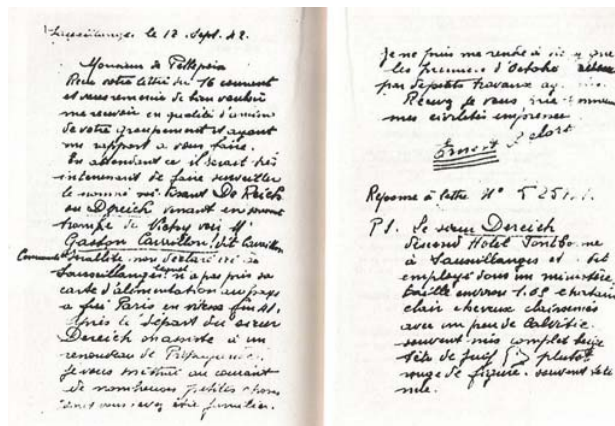 le 17 Sept. 42.
Monsieur de Pellepoix
Reçu votre lettre du 16 courant
et vous remercie de bien vouloir
me recevoir en qualité d'ami
de votre groupement et ayant
un rapport a vous faire.
En attendant ce il serait très
intéressant de faire surveiller
le nommé De Reich
ou Dereich venant en
de Vichy voir Mr
Gaston Cavrillon, dit Cavrillon
non déclaré à
Sauxillanges n'a pas pris sa
carte d'alimentation au pays
a fui Paris en fin 41.
Après le départ du sieur
Dereich assiste à un
renouveau de Propagande.
Je vous mettrai au courant
de nombreuses petites choses
familier.
Je ne puis me rendre à que
les premiers d'Octobre
par de petits travaux
Recevez je vous prie
mes civilités empressées
Ernest
Réponse à lettre N° 525
PS. Le sieur Dereich
descend Hotel
à Sauxillanges et dit
employé dans un ministère,
taille environ 1.65 chatain
clair cheveux clairsemés
avec un peu de calvitie.
souvent mis complet beige
tête de juif plutôt
rouge de figure. souvent tête
nue.